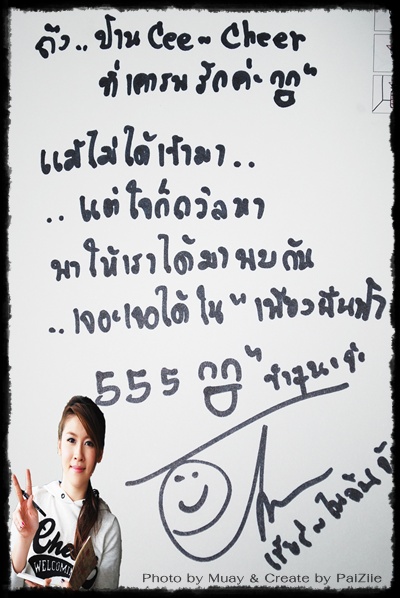 ถึง.. บ้าน Cee~Cheer
ที่เคารพรักค่ะ
แม้ไม่ได้เข้ามา..
.. แต่ใจก็ถวิลหา
พาให้เราได้มาพบกัน
..เจอะเจอได้ใน "เพียงผืนฟ้า"
555
Cheer
WELCOME
Photo by Muay & Create by PalZile